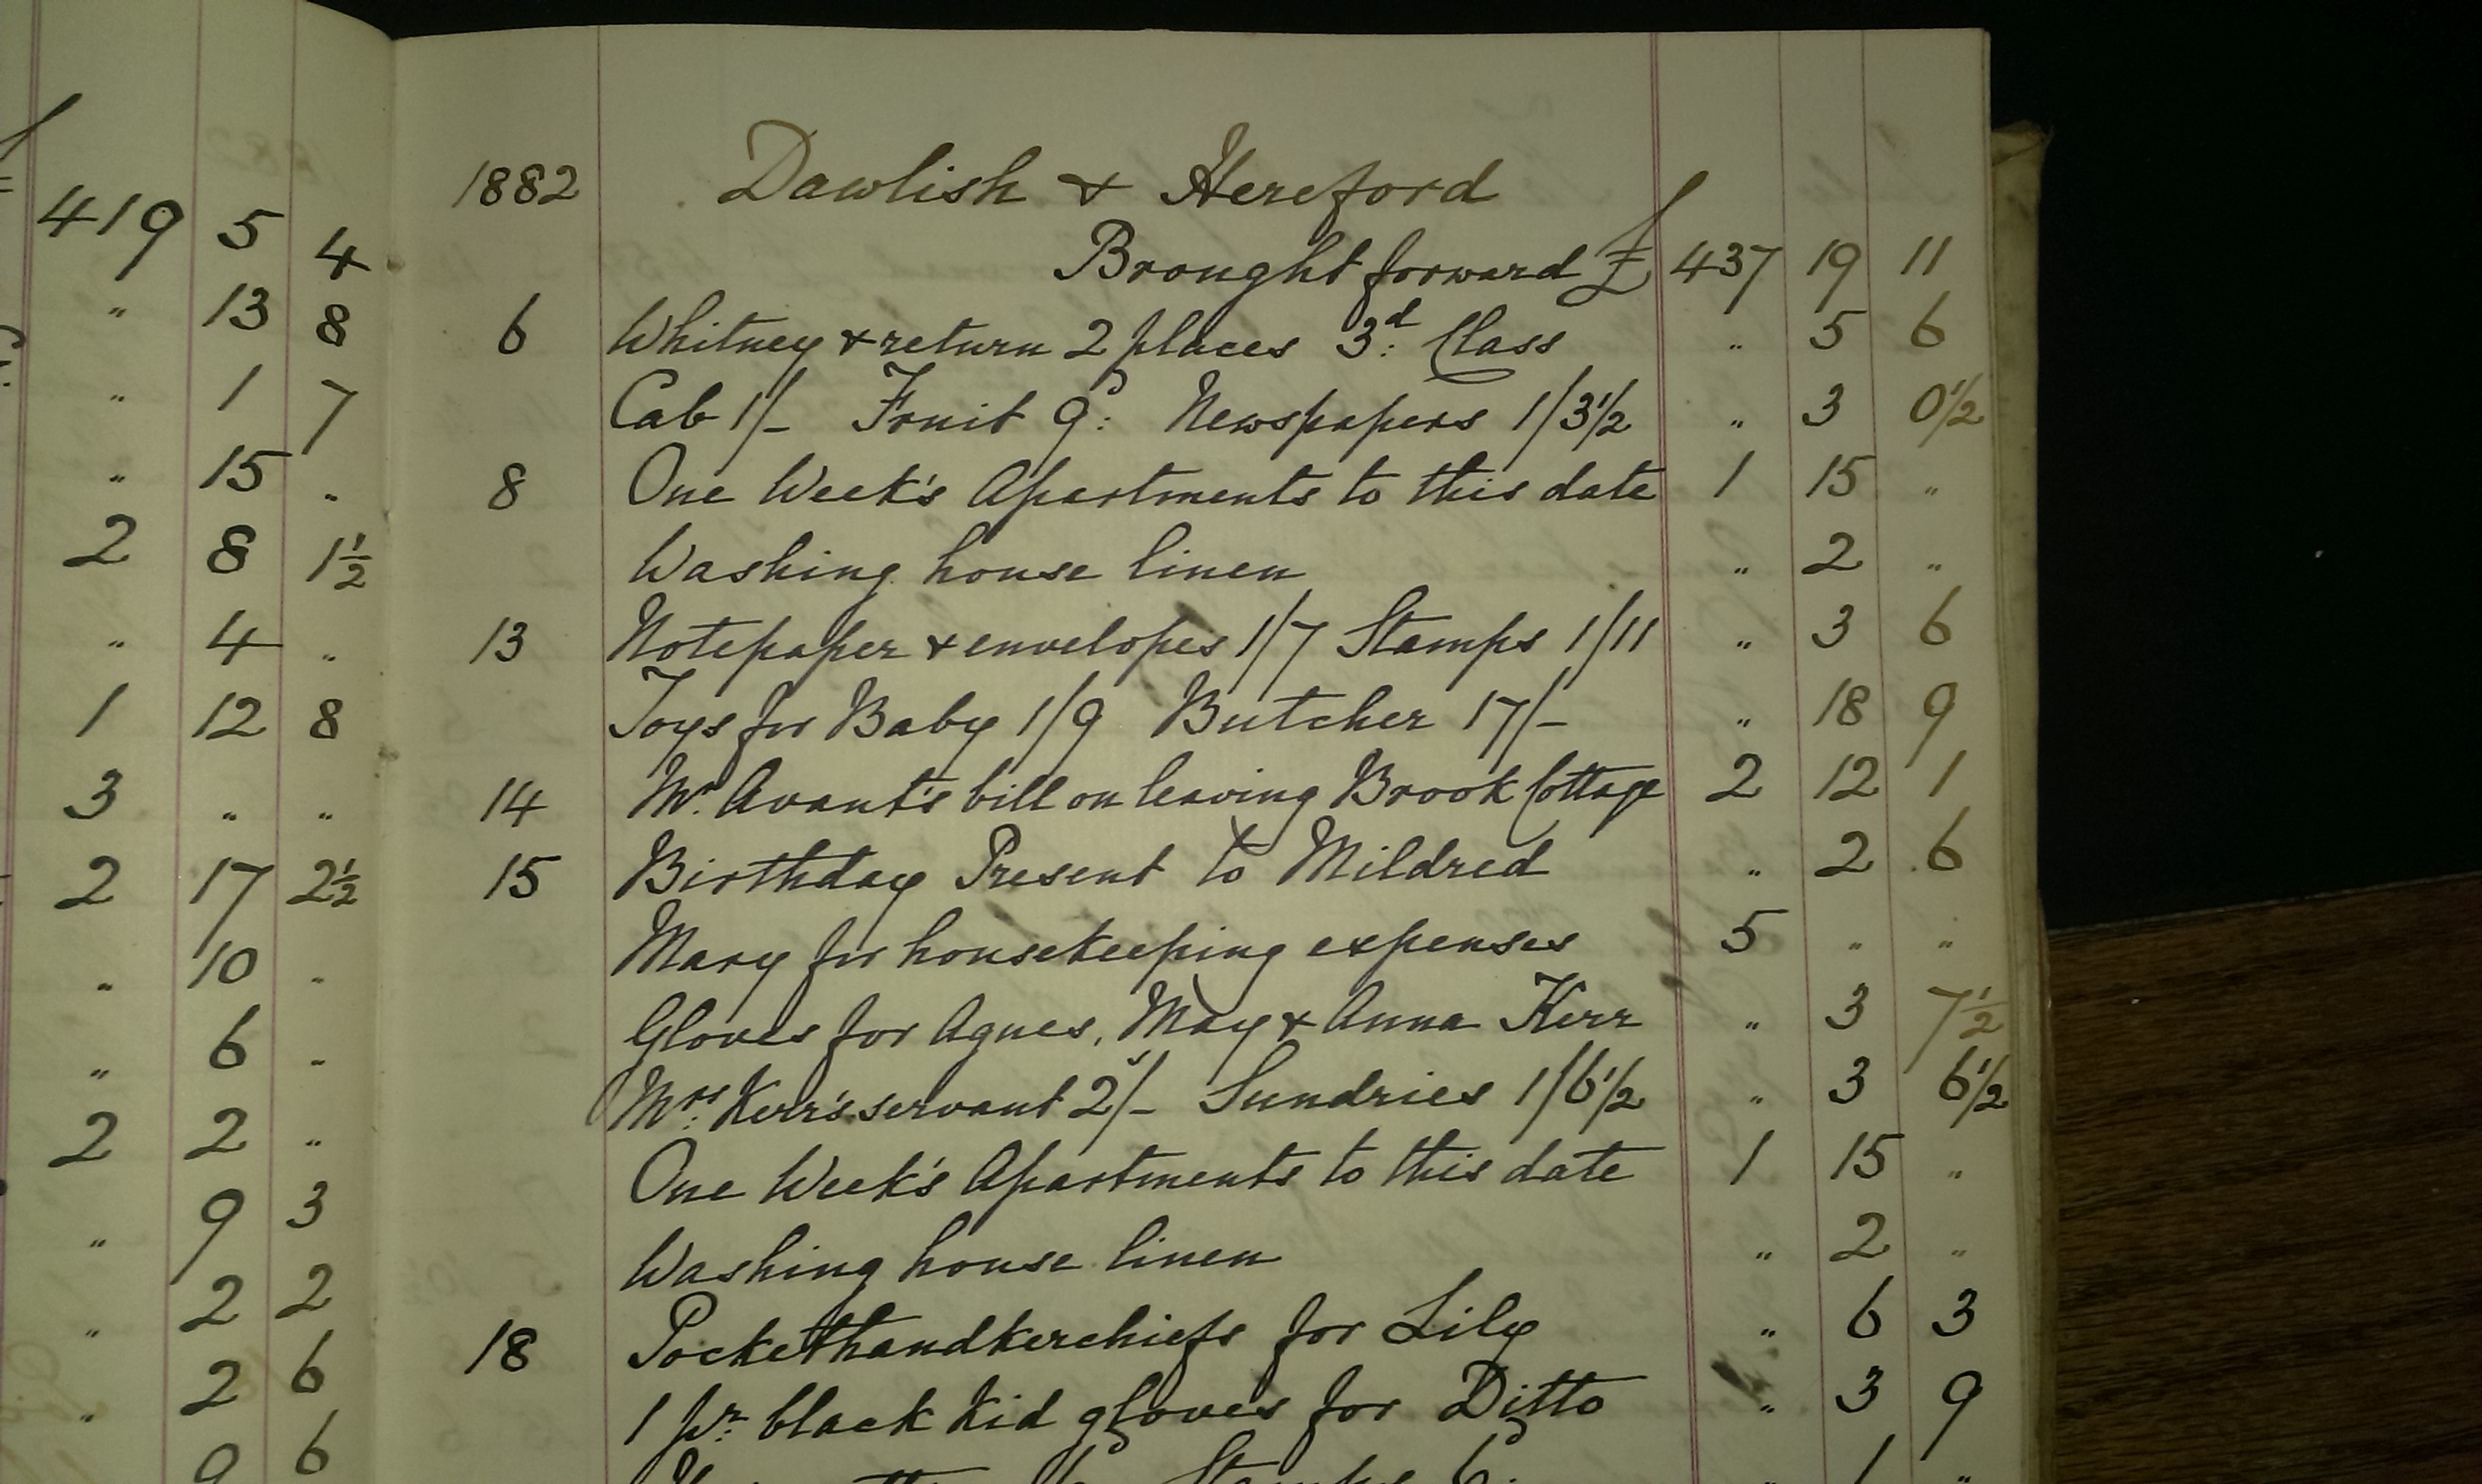 419 5 4
" 13 8
" 1 7
" 15 "
2 8 1½
" 4 "
1 12 8
3 " "
2 17 2½
" 10 "
" 6 "
2 2 "
" 9 3
" 2 2
" 2 6
9 6
1882 Dawlish & Hereford
Brought forward £ 437 19 11
6 Whitney & return 2 places 3d. Class " 5 6
Cab 1/- Fruit 9d. Newspapers 1/3½ " 3 0½
8 One Week's Apartments to this date 1 15 "
Washing house linen " 2 "
13 Notepaper & envelopes 1/7 Stamps 1/11 " 3 6
Toys for Baby 1/9 Butcher 17/- " 18 9
14 Mr. Avant's bill on leaving Brook Cottage 2 12 1
15 Birthday Present to Mildred " 2 6
Mary for housekeeping expenses 5 " "
Gloves for Agnes, May & Anna Kerr " 3 7½
Mrs. Kerr's servant 2/- Sundries 1/6½ " 3 6½
One Week's Apartments to this date 1 15 "
Washing house linen " 2 "
18 Pockethandkerchiefs for Lily " 6 3
1 pr. black Kid gloves for Ditto " 3 9
Stamps 6d. " 1 "